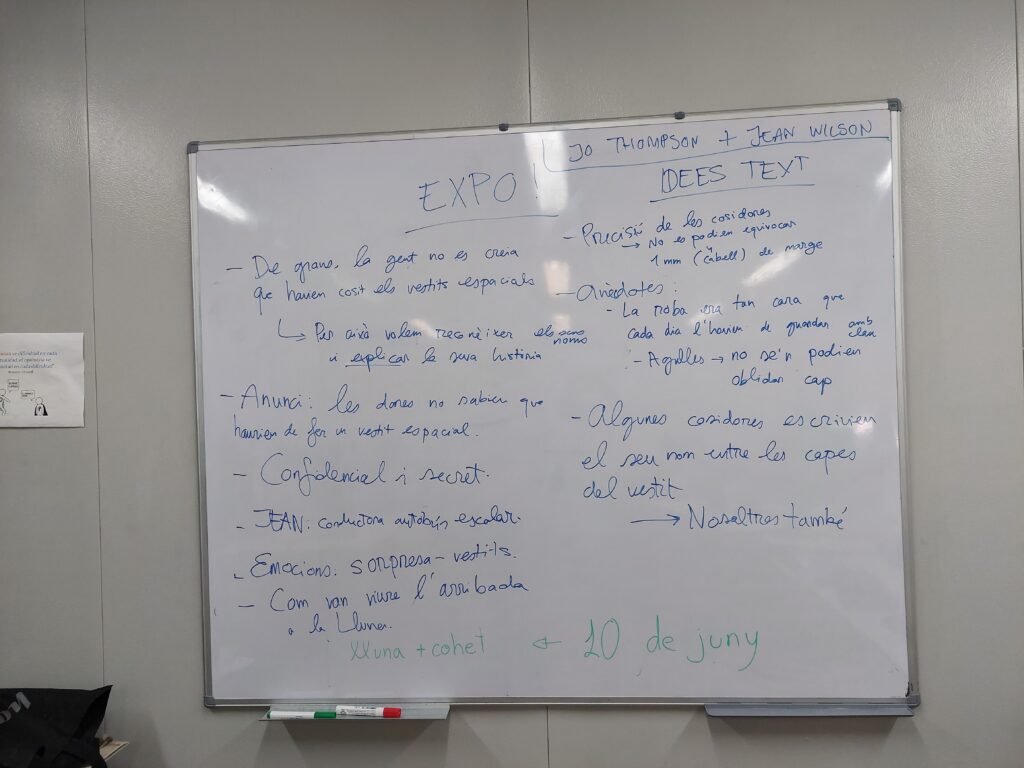 JO THOMPSON + JEAN WILSON
EXPO!
- De grans, la gent no es creia
que havien cosit els vestits espacials
Per això volem reconèixer els seus
noms
i explicar la seva història
- Anunci: les dones no sabien que
haurien de fer un vestit espacial.
- Confidencial i secret.
- JEAN: conductora autobús escolar.
- Emocions: sorpresa - vestits.
- Com van viure l'arribada
a la Lluna.
IDEES TEXT
- Precisió de les cosidores
→ No es podien equivocar
1 mm (cabell) de marge
- Anècdotes:
- La roba era tan cara que
cada dia l'havien de guardar amb
clau
- Agulles → no se'n podien
oblidar cap
- Algunes cosidores escrivien
el seu nom entre les capes
del vestit
→ Nosaltres també
lluna + cohet ← 10 de juny